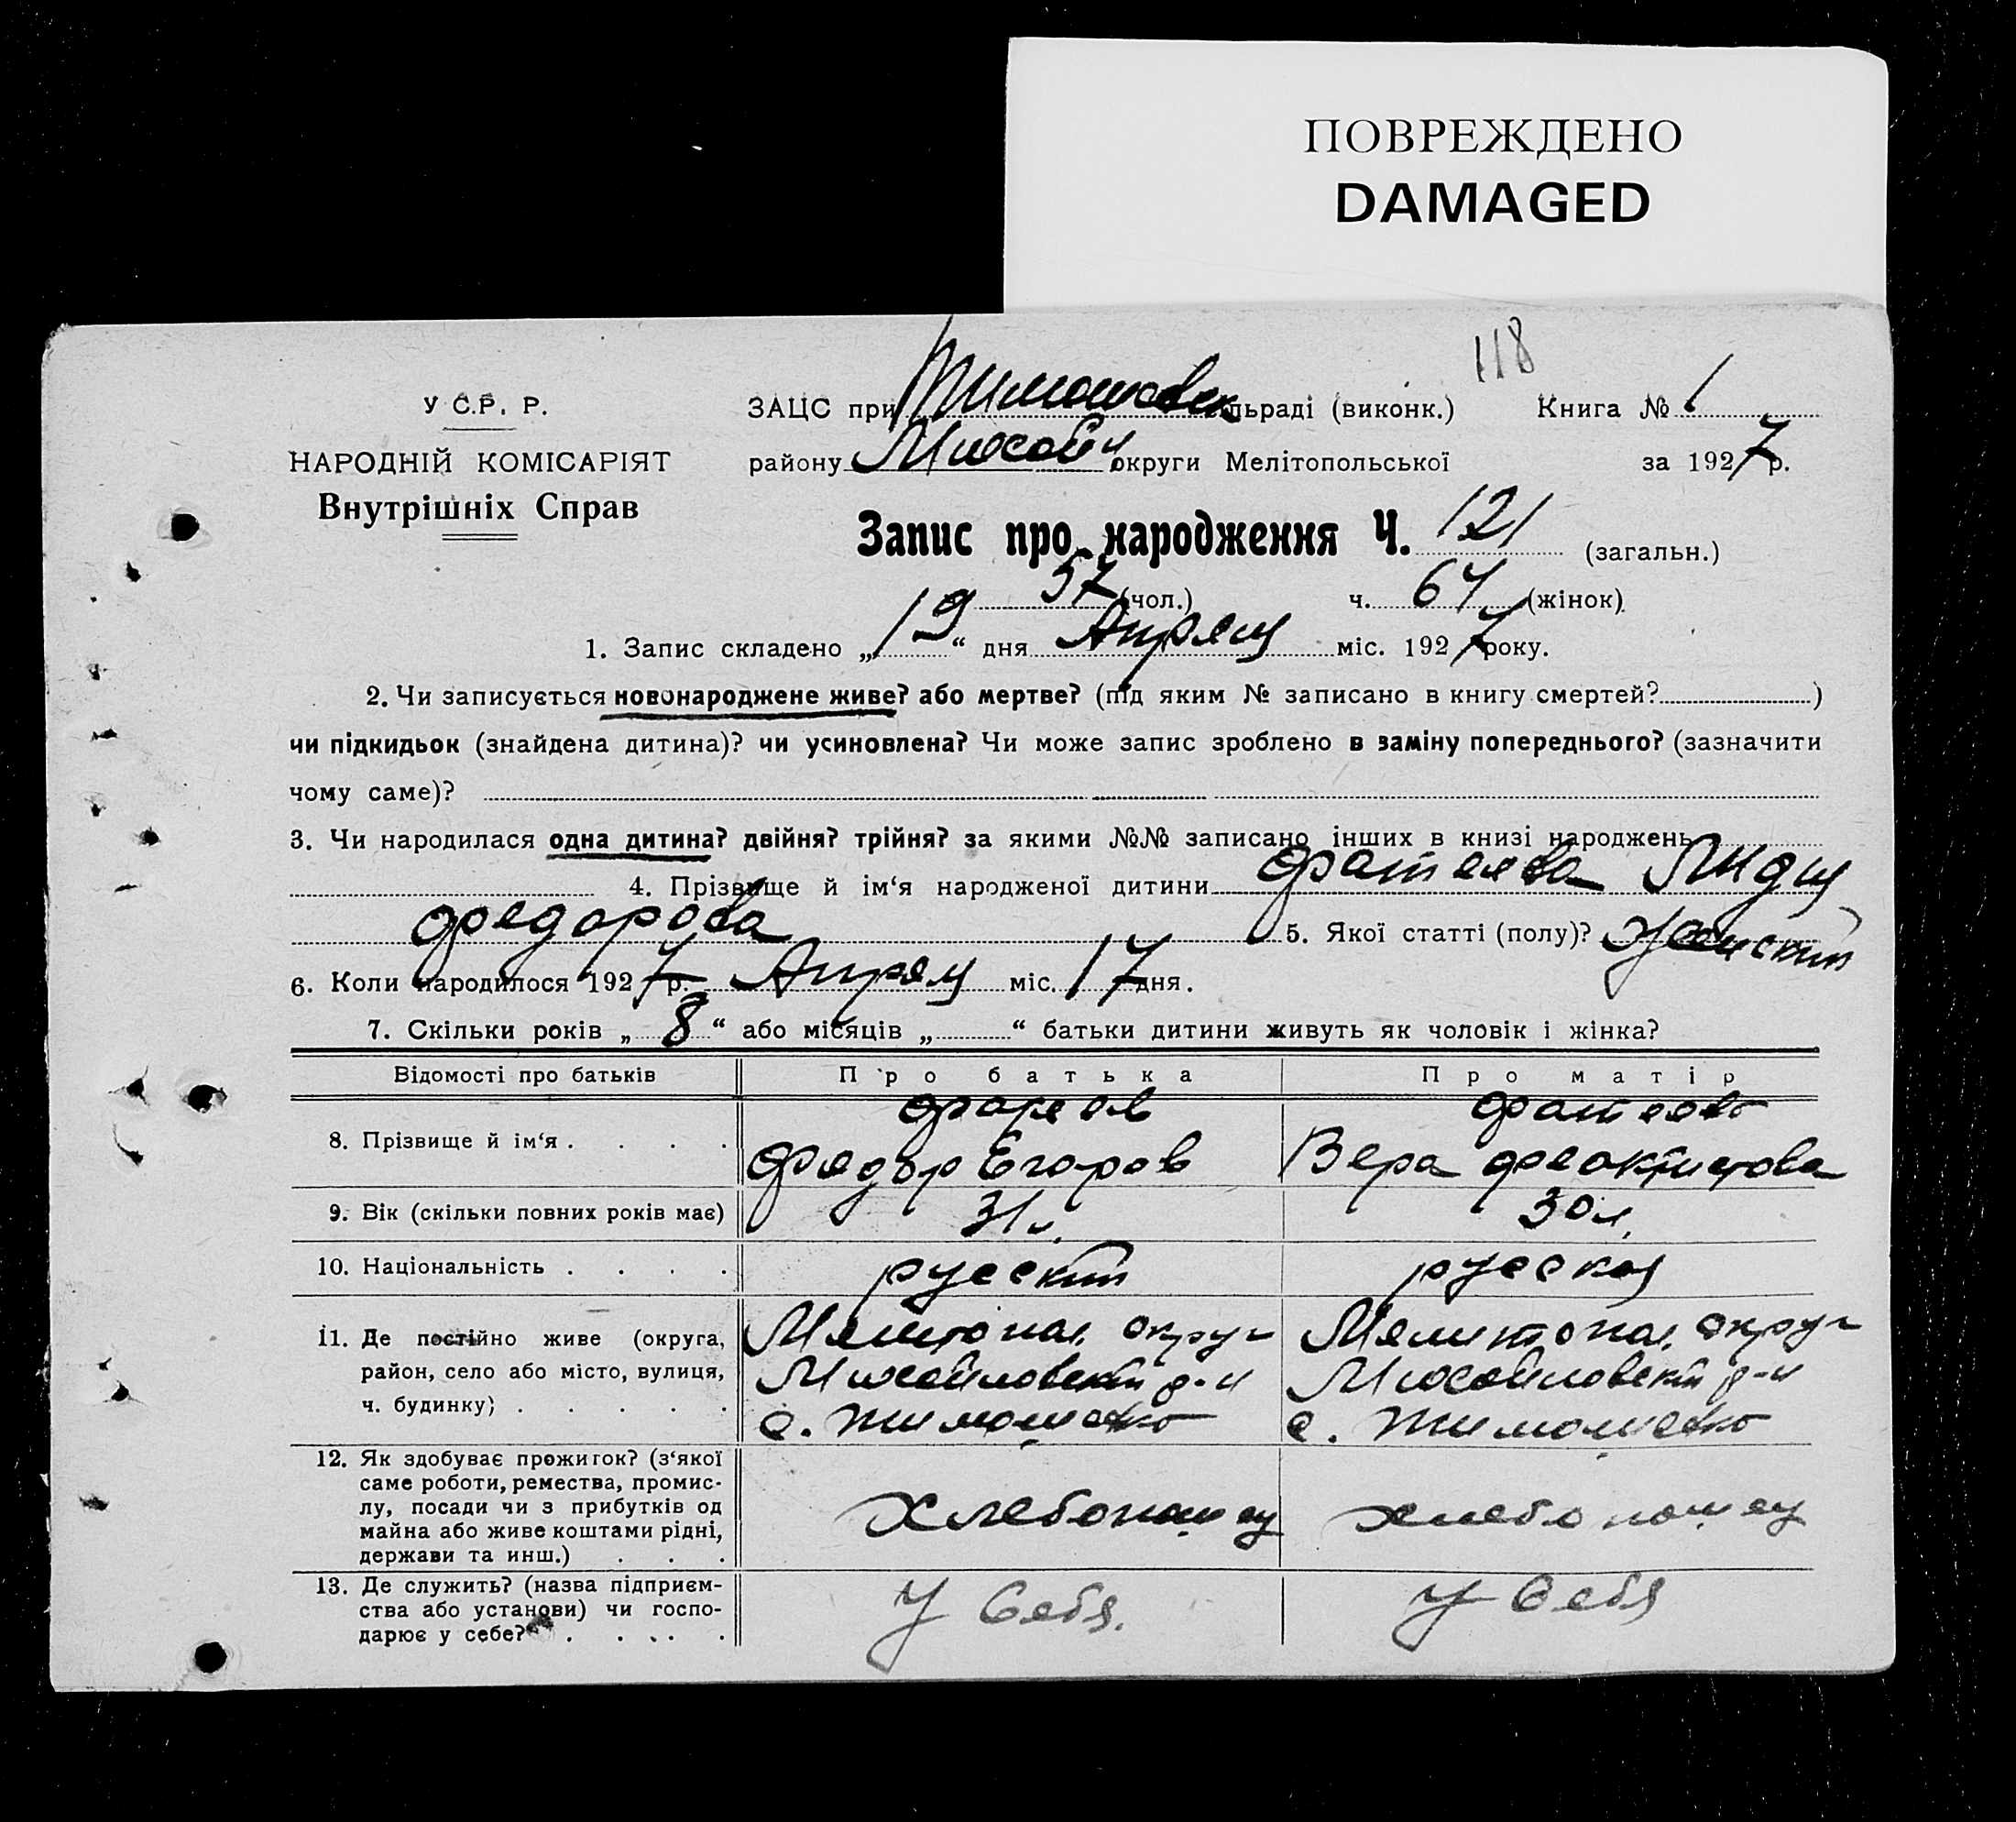 ПОВРЕЖДЕНО
DAMAGED
118
У С.Р. Р.
ЗАЦС при Тимошовск льраді (виконк.) Книга № 1
НАРОДНІЙ КОМІСАРІЯТ
району Михайл округи Мелітопольської за 1927 р.
Внутрішніх Справ
Запис про народження Ч. 121 (загальн.)
57 (чол.) ч. 64 (жінок)
1. Запис складено „19“ дня Апреля міс. 1927 року.
2. Чи записується новонароджене живе? або мертве? (під яким № записано в книгу смертей? )
чи підкидьок (знайдена дитина)? чи усиновлена? Чи може запис зроблено в заміну попереднього? (зазначити
чому саме)?
3. Чи народилася одна дитина? двійня? трійня? за якими №№ записано інших в книзі народжень
4. Прізвище й ім‘я народженої дитини Фатеева Лидия
Федорова 5. Якої статті (полу)? Женский
6. Коли народилося 1927 р. Апреля міс. 17 дня.
7. Скільки років „8“ або місяців „ “ батьки дитини живуть як чоловік і жінка?
Відомості про батьків Про батька Про матір
8. Прізвище й ім‘я . . . .
Фатеева
Федор Егоров Вера Феоктистова
9. Вік (скільки повних років має) 31 л. 30 л.
10. Національність . . . . русский русская
11. Де постійно живе (округа, район, село або місто, вулиця, ч. будинку) . . . . .
Мелитопол. округ
Михайловский р-н
с. Тимошовка
Мелитопол. округ
Михайловский р-н
с. Тимошовка
12. Як здобуває прожиток? (з‘якої
саме роботи, ремества, промис-
лу, посади чи з прибутків од
майна або живе коштами рідні,
держави та инш.) . . .
Хлебопашец хлебопашец
13. Де служить? (назва підприєм-
ства або установи) чи госпо-
дарює у себе? . . . . .
У себя. У себя